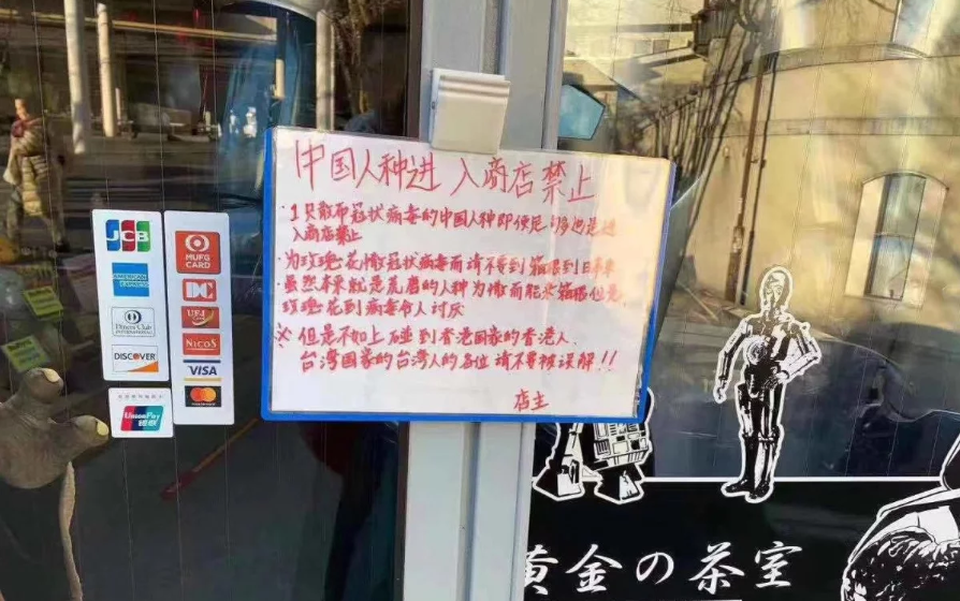 中国人种进入商店禁止
·1只散布冠状病毒的中国人种即便是
入商店禁止
·为玫瑰花撒冠状病毒而请不要到箱根到日本来
·虽然本来就是荒磨的人种为撒而能来箱根但是,
玫瑰花到病毒令人讨厌
※但是不加上碰到香港国家的香港人.
台湾国家的台湾人的各位请不要被误解!!
店主
JCB
AMERICAN EXPRESS
Diners Club
INTERNATIONAL
DISCOVER
UnionPay
银联
MUFG
CARD
DC
UFJ
NICOS
VISA
mastercard
黄金の茶室